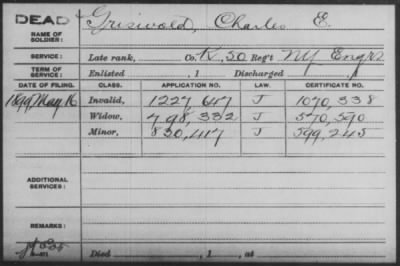 DEAD Griswold, Charles E.
NAME OF SOLDIER:
SERVICE: Late rank, Co. K, 50 Reg't NY Engrs
TERM OF SERVICE: Enlisted , 1 Discharged , 1
DATE OF FILING. CLASS. APPLICATION NO. LAW. CERTIFICATE NO.
1899, May 16 Invalid, 1227,647 J 1070,338
Widow, 798,332 J 570,590
Minor, 830,417 J 599,245
ADDITIONAL SERVICES:
REMARKS:
Died , 1 , at